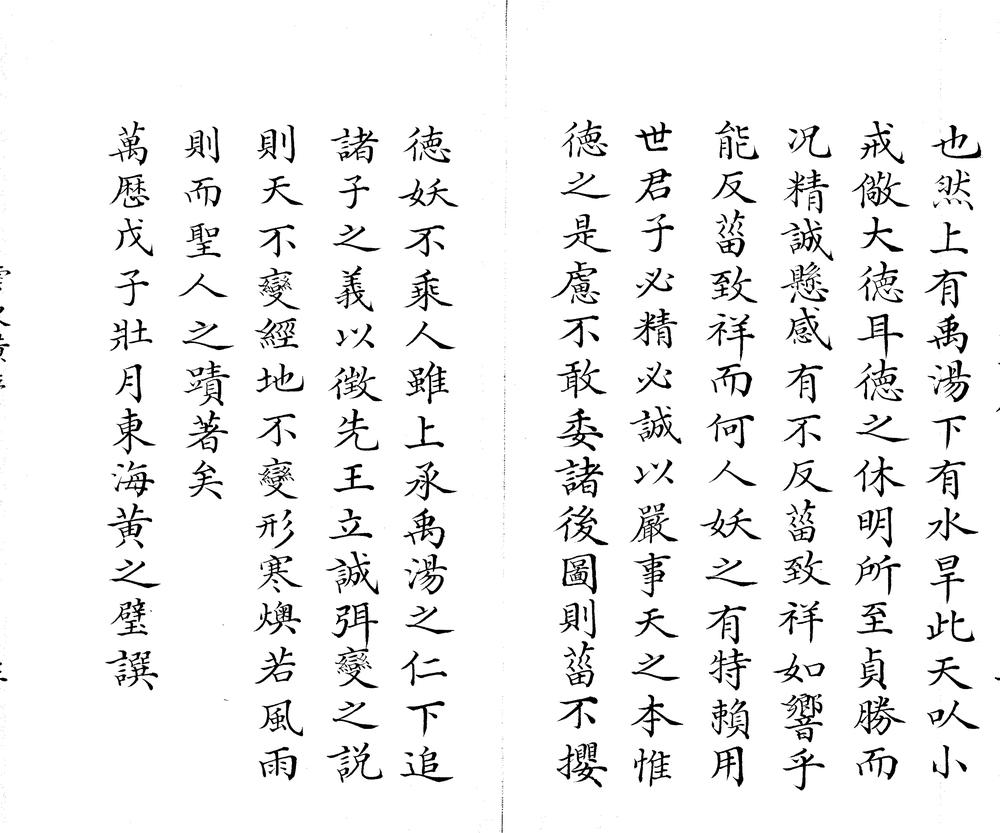 也然上有禹湯下有水旱此天㕥小
戒儆大徳耳徳之休明所至貞勝而
况精誠懸感有不反菑致祥如響乎
能反菑致祥而何人妖之有特賴用
世君子必精必誠以嚴事天之本惟
徳之是慮不敢委諸後圖則菑不攖
徳妖不乘人雖上承禹湯之仁下追
諸子之義以徵先王立誠弭變之説
則天不變經地不變形寒燠若風雨
則而聖人之蹟著矣
萬厯戊子壯月東海黄之璧譔